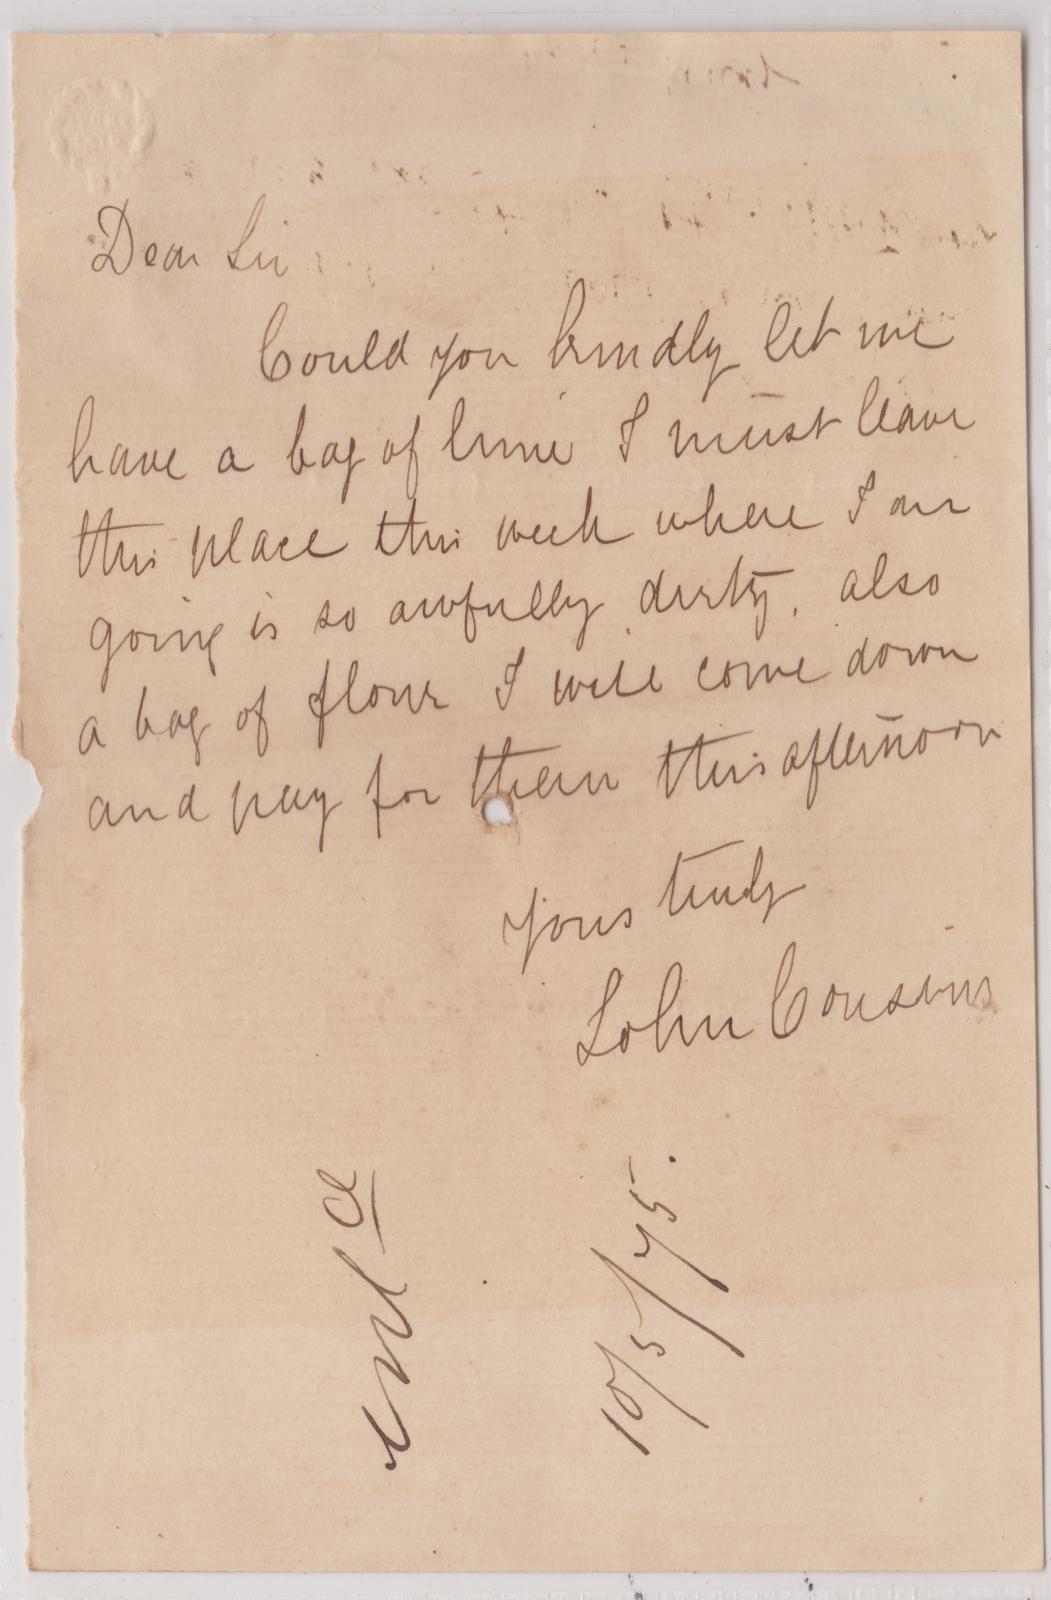 Dear Sir
Could you kindly let me
have a bag of lime I must leave
this place this week where I am
going is so awfully dirty, also
a bag of flour I will come down
and pay for them this afternoon
Yours truly
John Cousins
10/5/75.